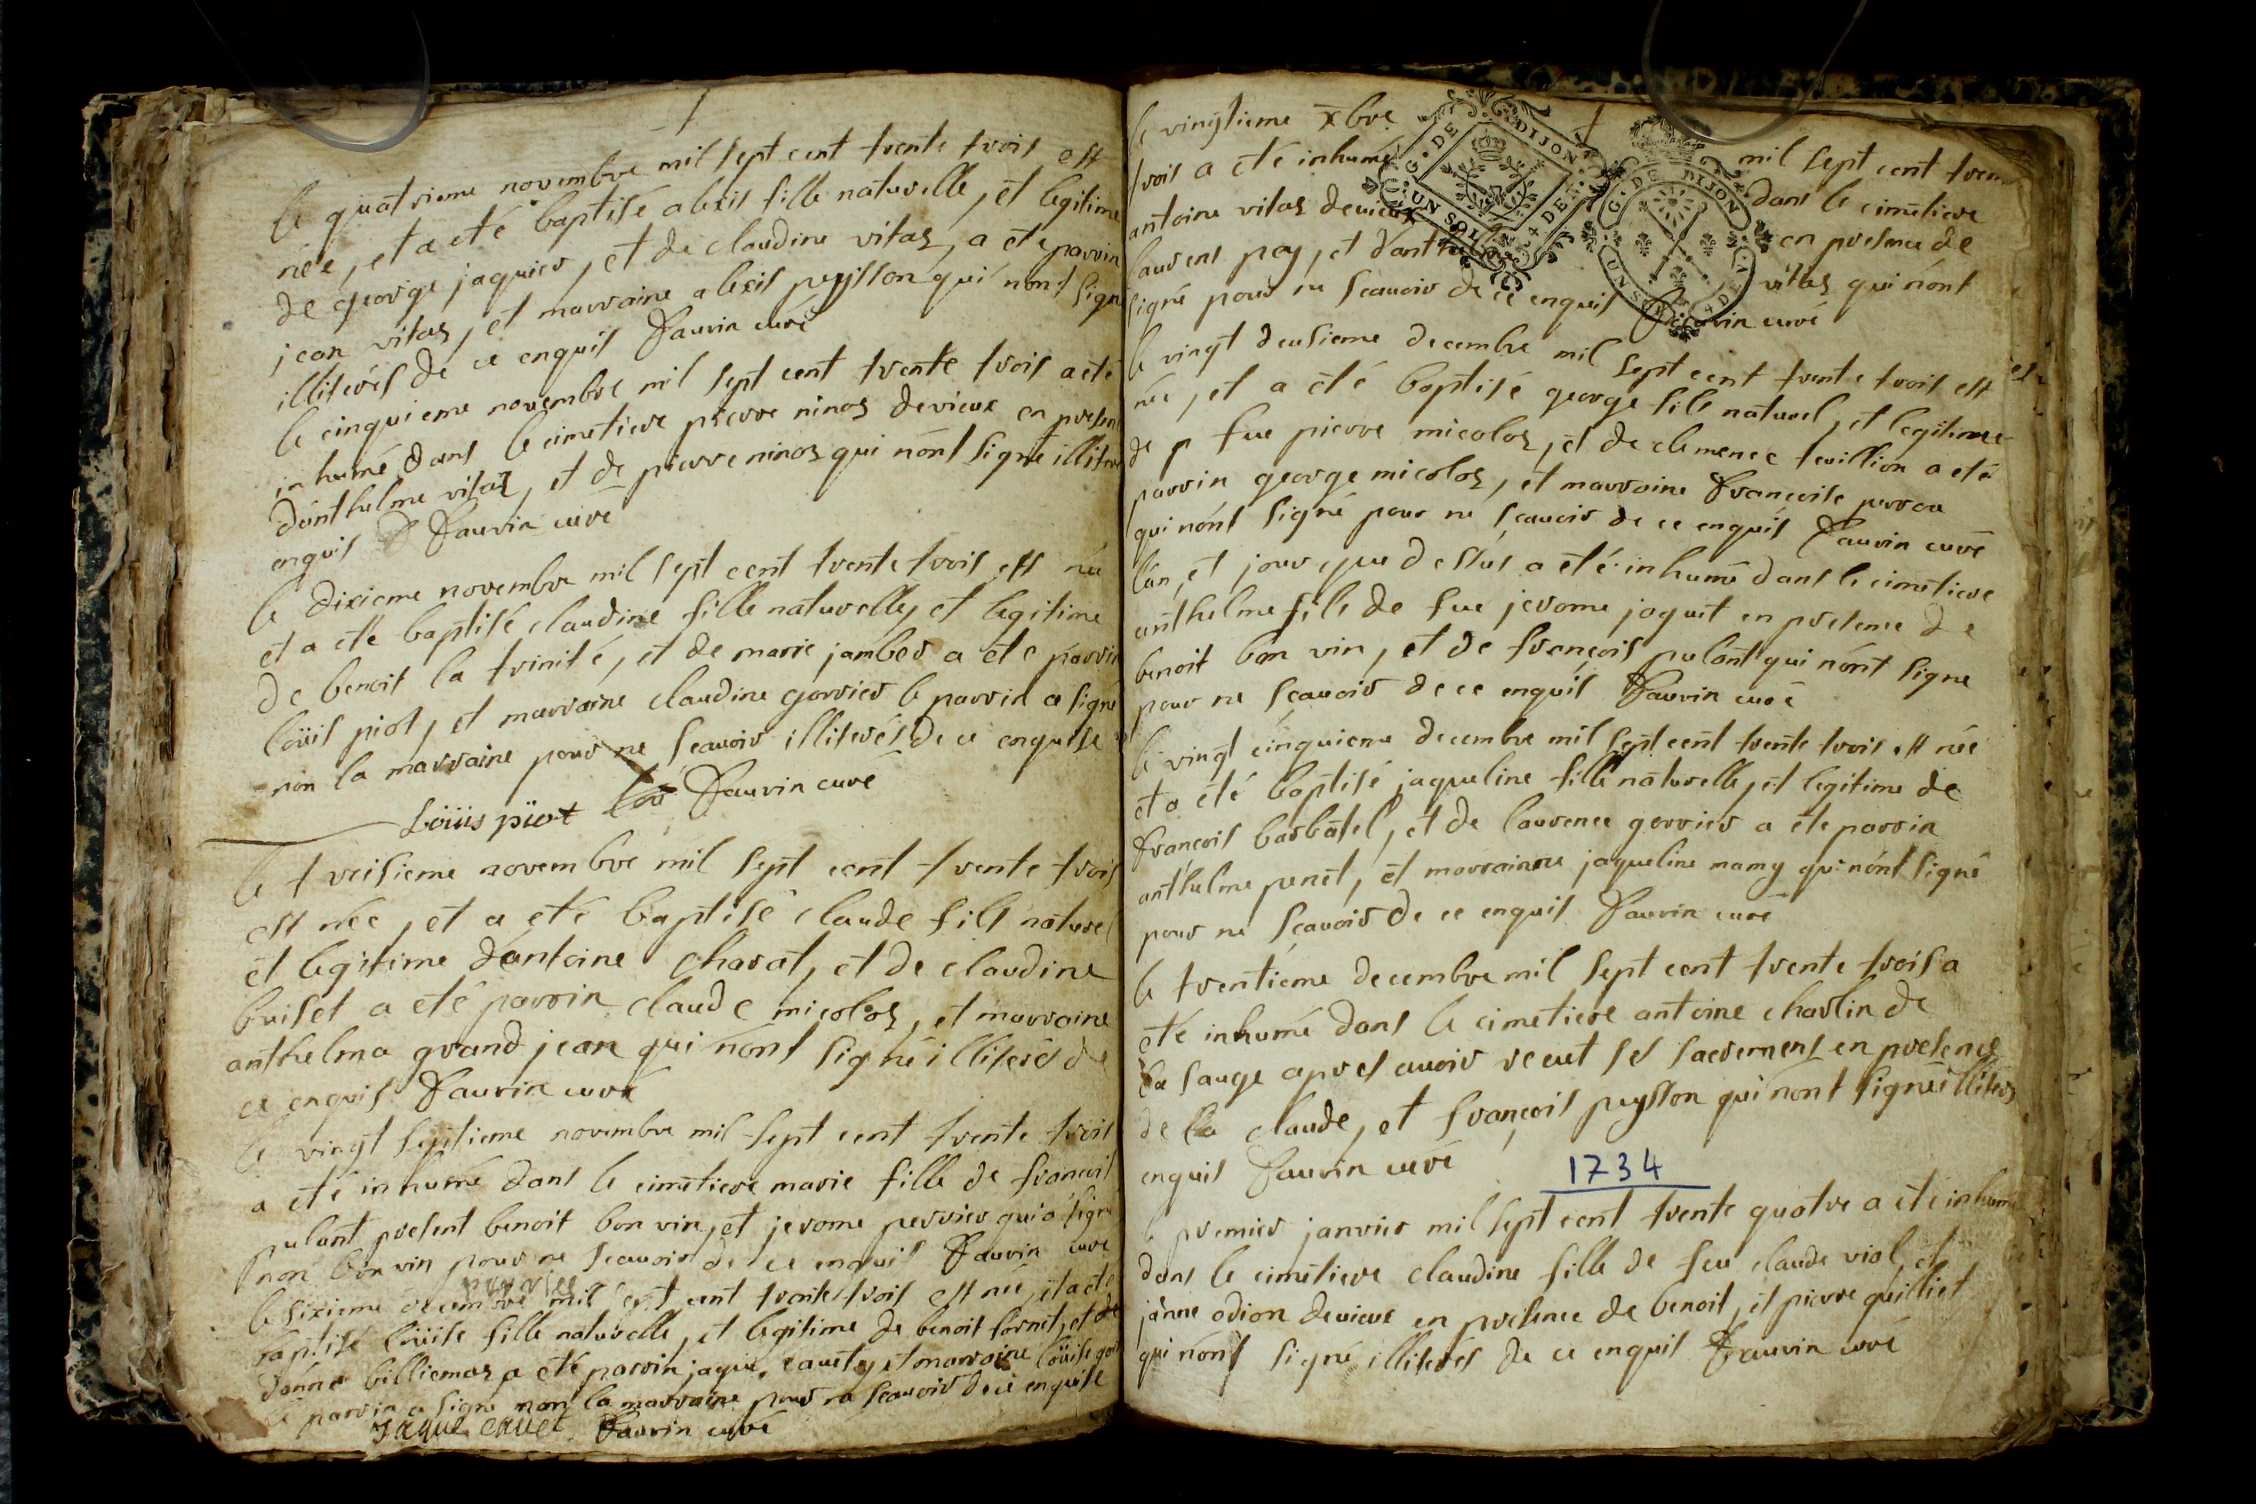 le quatrieme novembre mil sept cent trente trois est
née, et a eté baptisé alexis fille naturelle, et legitime
de george jaquier, et de claudine vitaz, a ete parrin
jean vitaz, et marraine alexis peysson qui nont signé
illiterés de ce enquis Faurin curé
le cinquieme novembre mil sept cent trente trois a eté
inhumé dans le cimetiere pierre ninoz devieux en presen
danthelme vitaz, et de pierre ninoz qui nónt signé illiter
enquis Faurin curé
le dixieme novembre mil sept cent trente trois est née
et a eté baptisé claudine fille naturelle, et legitime
de benoit la trinité, et de marie jamber a eté parrin
loüis piot, et marraine claudine gorrier le parrin a signé
non la marraine pour ne scauoir illiterés de ce enquise
Loüis piot Faurin curé
le treisieme novembre mil sept cent trente trois
est née, et a eté baptisé claude fils naturel
et legitime dantoine charat, et de claudine
briset a eté parrin claude micoloz, et marraine
anthelma grand jean qui nónt signé illiterés de
ce enquis Faurin curé
le vingt septieme novembre mil sept cent trente trois
a eté inhumé dans le cimetiere marie fille de francois
pulant present benoit bon vin, et jerome perrier qui a signé
non bon vin pour ne scauoir de ce enquis Faurin curé
le sixieme decembre mil sept cent trente trois est née, et a eté
baptisé loüise fille naturelle, et legitime de benoit fornet, et de
donna billiemaz a eté parrin jaque cauet, et marraine loüise
le parrin a signé non la marraine pour ne scauoir de ce enquise
Jaque cauet Faurin curé
le vingtieme xbre mil sept cent tren
trois a eté inhumé dans le cimetiere
antoine vitaz devieux en presence de
laurens pey, et danthelme vitaz qui nónt
signé pour ne scauoir de ce enquis Faurin curé
le vingt deusieme decembre mil sept cent trente trois est
née, et a eté baptisé george fils naturel, et legitime
de p fue pierre micoloz, et de clemence teuillion a eté
parrin george micoloz, et marraine francoise perrou
qui nónt signé pour ne scauoir de ce enquis Faurin curé
lán, et jour que dessus a eté inhumé dans le cimetiere
anthelme fils de fue jerome jaquit en presence de
benoit bon vin, et de françois pulant qui nónt signé
pour ne scauoir de ce enquis Faurin curé
le vingt cinquieme decembre mil sept cent trente trois est née
et a eté baptisé jaqueline fille naturelle, et legitime de
francois barbatel, et de laurence gerrier a eté parrin
anthelme penet, et marrainne jaqueline mamy qui nónt signé
pour ne scauoir de ce enquis Faurin curé
le trentieme decembre mil sept cent trente trois a
eté inhumé dans le cimetiere antoine charlin de
la sauge apres auoir receut ses sacremens en presence
de la claude, et françois peysson qui nónt signé illiterés
enquis Faurin curé
1734
le premier janvier mil sept cent trente quatre a eté inhumé
dans le cimetiere claudine fille de feu claude viol, et
janne odion devieux en presence de benoit, et pierre quilliet
qui nónt signé illiterés de ce enquis Faurin curé
G. DE DIJON
UN SOL
G. DE DIJON
UN SOL